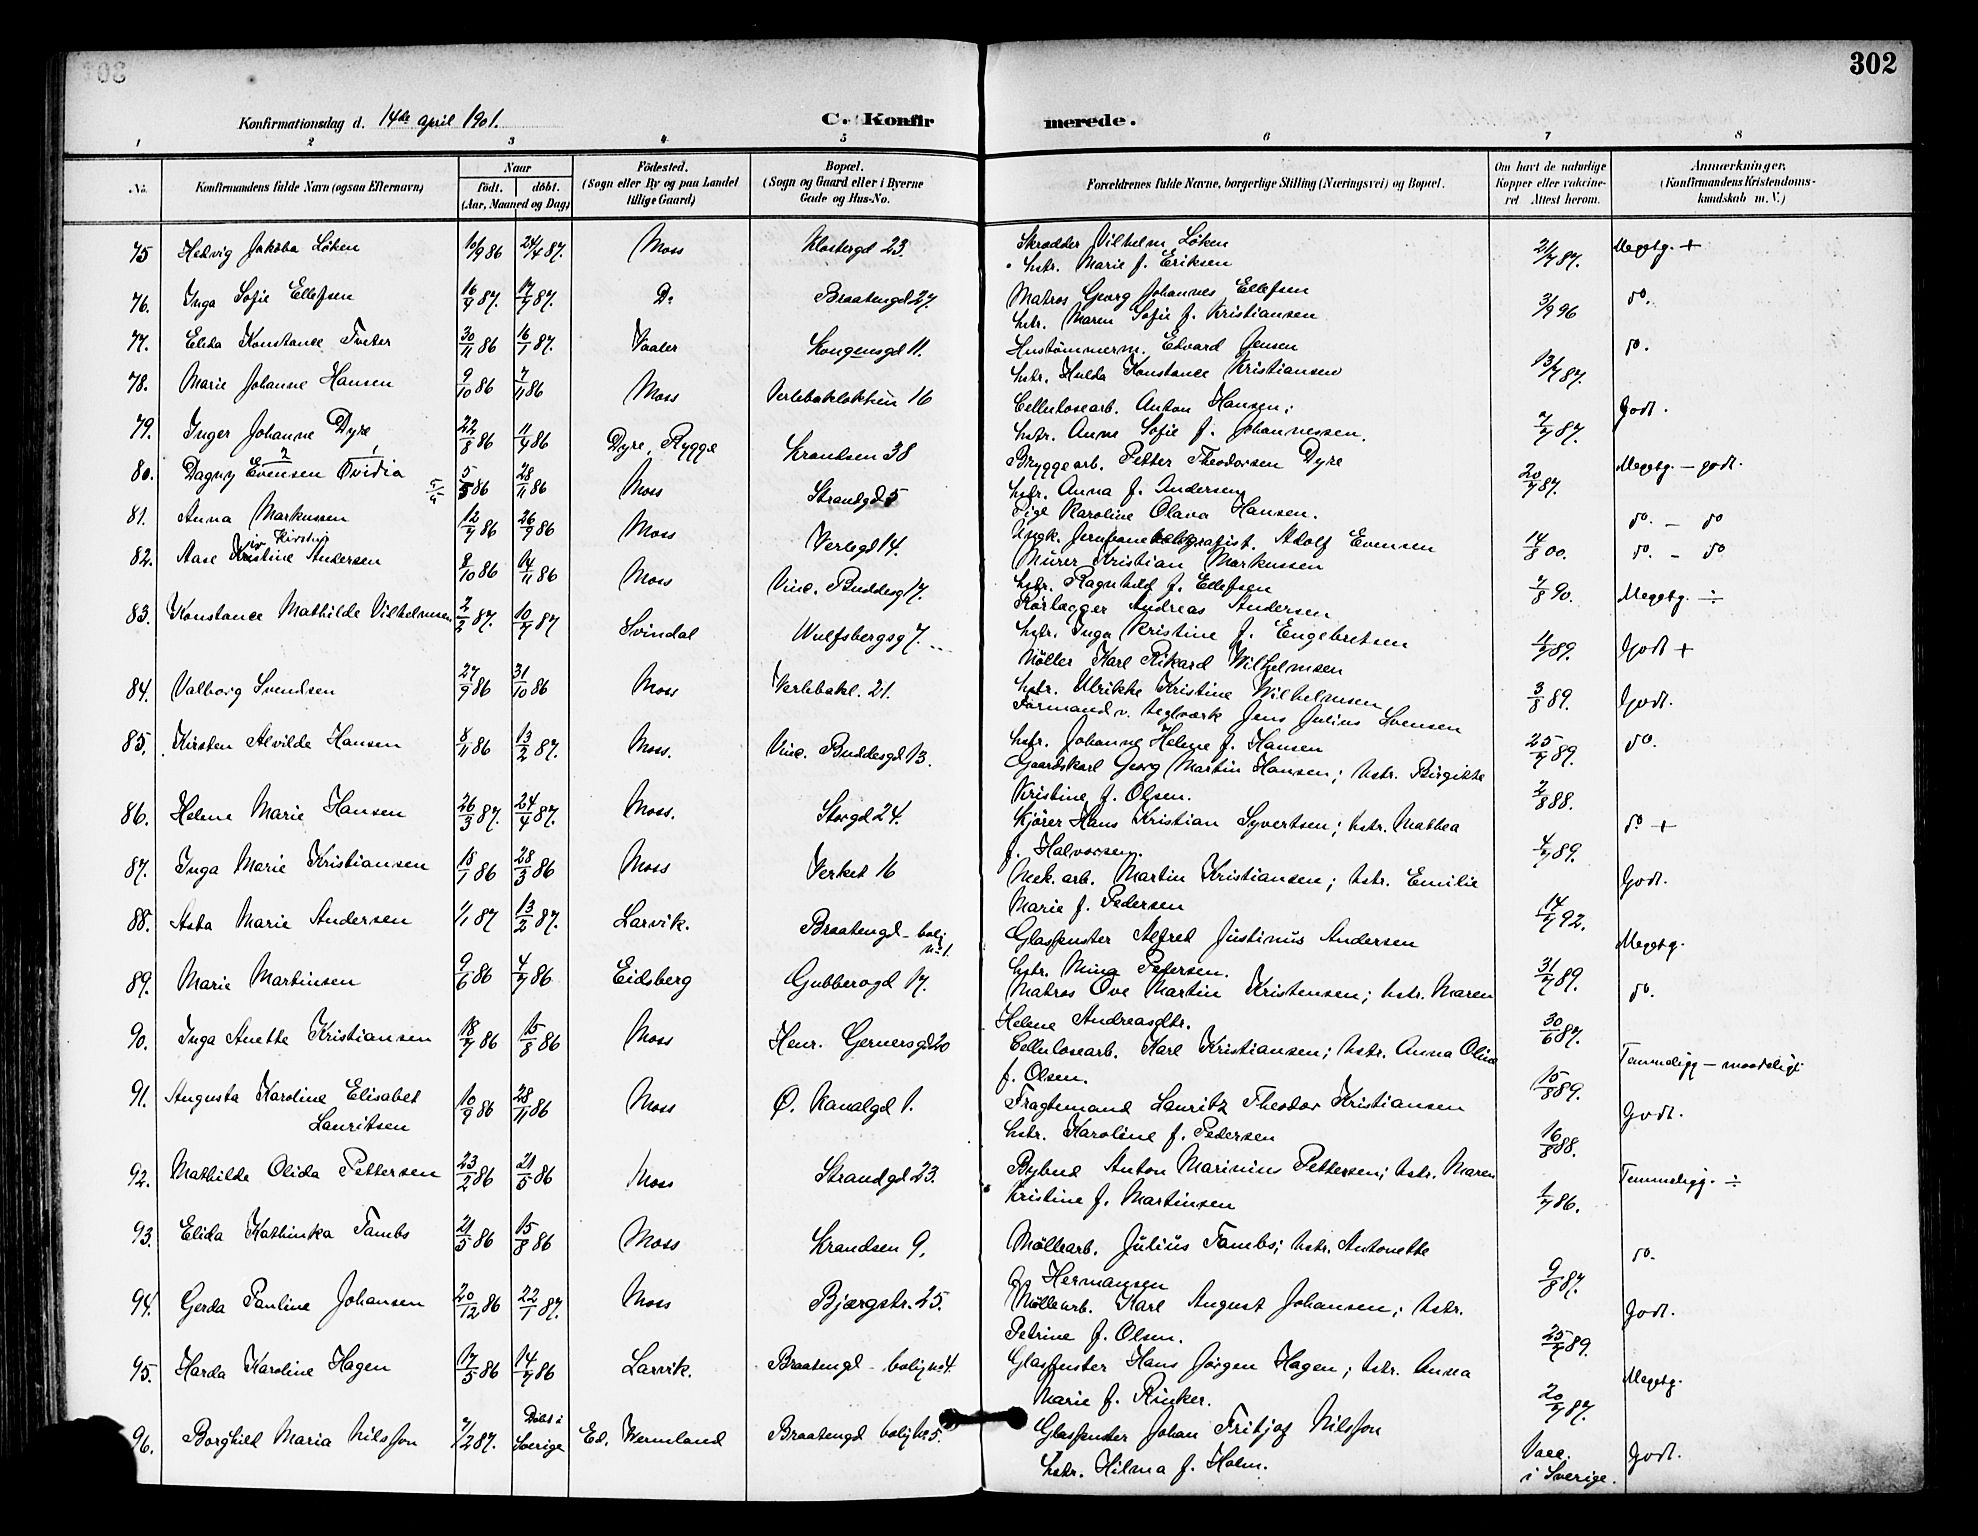 302
Konfirmationsdag d. 14de april 1901.
C. Konfirmerede.
1 2 3 4 5 6 7 8
No.
Konfirmandens fulde Navn (ogsaa Efternavn)
Naar
født. døbt.
(Aar, Maaned og Dag)
Fødested.
(Sogn eller By og paa Landet
tillige Gaard)
Bopæl.
(Sogn og Gaard eller i Byerne
Gade og Hus-No.
Forældrenes fulde Navne, borgerlige Stilling (Næringsvei) og Bopæl.
Om havt de naturlige
Kopper eller vaccine-
ret. Attest herom.
Anmærkninger,
(Konfirmandens Kristendoms-
kundskab m. V.)
75 Hedvig Jakoba Löken 10/9 86 24/4 87. Moss Klostergd 23. Skrædder Vilhelm Löken
hstr. Marie f. Eriksen 2/7 87. Megetg. +
76. Inga Sofie Ellefsen 16/4 87. 17/7 87. Do Braatengd 27. Matros Georg Johannes Ellefsen
hstr. Maren Sofie f. Kristiansen 3/9 96 do.
77. Elida Konstance Tveter 30/11 86 16/1 87. Vaaler Kongensgd 11. Hustömmerm. Edvard Jensen
hstr. Hulda Konstance Kristiansen 13/7 87. do.
78. Marie Johanne Hansen 9/10 86 7/11 86 Moss Verlebakloktien 16 Cellulosearb. Anton Hansen;
hstr. Anne Sofie f. Johannessen. 2/7 87. Godt.
79. Inger Johanne Dyre 22/8 86 11/9 86 Dyre, Rygge Krandsen 38 Bryggearb. Petter Theodorsen Dyre
hstr. Anna f. Andersen 20/7 87. Megetg. – godt.
80. Dagny Evensen Ovidia 5/5 86 28/11 86 Moss Strandgd 5 Pige Karoline Olava Hansen.
Ungk. Jernbanetelegrafist. Adolf Evensen 14/8 00. do. – do
81. Anna Markussen 12/7 86 26/9 86 Moss Verlegd 14. Murer Kristian Markussen
hstr. Ragnhild f. Ellefsen 7/8 90. do. – do
82. Aase Kristine Andersen 8/10 86 14/11 86 Moss Vinc. Buddesg 17. Rörlægger Andreas Andersen
hstr. Inga Kristine f. Engebretsen 4/7 89. Megetg. ÷
83. Konstance Mathilde Vilhelmsen 2/2 87. 10/7 87 Svindal Wulfsbergsg 7. Möller Karl Rikard Wilhelmsen
hstr. Ulrikke Kristine Wilhelmsen 3/8 89. Godt +
84. Valborg Svendsen 27/9 86 31/10 86 Moss Verlebakl. 21. Formand v. teglværk Jens Julius Svensen
hstr. Johanne Helene f. Hansen 25/7 89. Godt.
85. Kirsten Alvilde Hansen 8/11 86 13/2 87. Moss. Vinc. Buddesgd 13. Gaardskarl Georg Martin Hansen; hstr. Birgitte
Kristine f. Olsen. 2/8 88. do.
86. Helene Marie Hansen 26/3 87. 24/4 87. Moss. Storgd 24. Kjörer Hans Kristian Syvertsen; hstr. Mathea
f. Halvorsen. 4/7 89. do +
87. Inga Marie Kristiansen 18/1 86 28/3 86 Moss Verket 16 Mek. arb. Martin Kristiansen; hstr. Emilie
Marie f. Pedersen 14/7 92. Godt.
88. Asta Marie Andersen 1/1 87 13/2 87. Larvik. Braatengd – bolig
Glaspuster Alfred Justinus Andersen
hstr. Mina Petersen. 31/7 89. Megetg.
89. Marie Martinsen 9/6 86 4/7 86 Eidsberg Gubberogd 17. Matros Ove Martin Kristensen; hstr. Maren
Helene Andreasdtr. 30/6 87. do.
90. Inga Anette Kristiansen 18/7 86 15/8 86 Moss Henr. Gernersgd 20 Cellulosearb. Karl Kristiansen; hstr. Anna Oliva
f. Olsen. 15/8 89. Temmeligg – maadeligt
91. Augusta Karoline Elisabet
Lauritsen 10/9 86 28/11 86 Moss Ö. Kanalgd 1. Fragtemand Lauritz Theodor Kristiansen
hstr. Karoline f. Pedersen 16/8 88. Godt.
92. Mathilde Olida Pettersen 23/2 86 21/5 86 Moss Strandgd 23. Bybud Anton Marinius Pettersen; hstr. Maren
Kristine f. Martinsen 1/7 86. Temmeligg. ÷
93. Elida Kathinka Tambs 21/5 86 15/8 86 Moss Krandsen 9. Möllearb. Julius Tambs; hstr. Antonette
Hermansen 9/8 87. do.
94. Gerda Pauline Johansen 20/12 86 22/1 87. Moss Bjærgstr. 25. Möllearb. Karl August Johansen; hstr.
Petrine f. Olsen. 25/7 89. Godt.
95. Harda Karoline Hagen 17/5 86 14/7 86 Larvik. Braatengd – bolig no 4. Glaspuster Hans Jörgen Hagen; hstr. Anna
Marie f. Rinker. 20/7 87. Megetg.
96. Borghild Maria Nilsson 7/2 87. Döbt i
Sverige Ed. Wermland Braatengd bolig no 5. Glaspuster Johan Fritjof Nilsson
hstr. Hilma f. Holm. Vacc.
i Sverige. Godt.